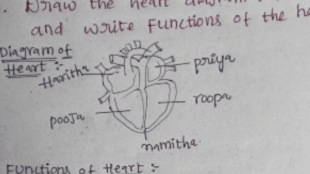 . Draw the heart diagram
and write Functions of the he
Diagram of
Heart :-
Haritha
priya
roopa
pooja
namitha.
Functions of Heart :-